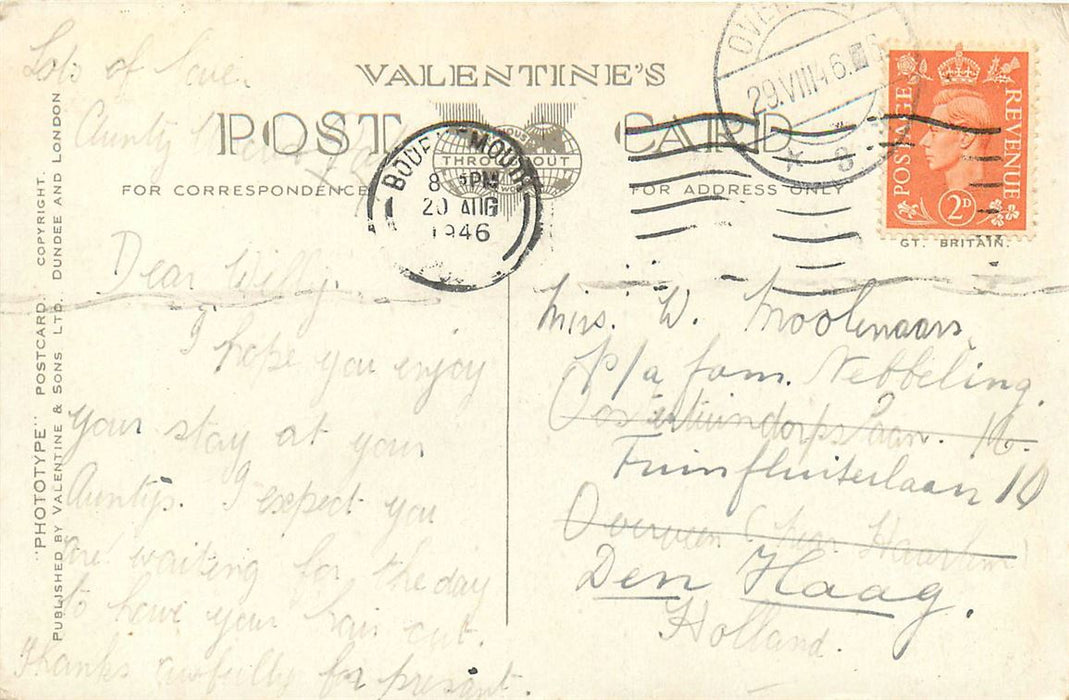 Lots of love.
Aunty
VALENTINE'S
POST CARD
THROUGHOUT
FOR CORRESPONDENCE
FOR ADDRESS ONLY
8 PM
20 AUG
1946
29.VIII.46
POSTAGE
REVENUE
2D
GT. BRITAIN.
"PHOTOTYPE" POSTCARD. COPYRIGHT.
PUBLISHED BY VALENTINE & SONS LTD. DUNDEE AND LONDON
Dear Willy.
I hope you enjoy
your stay at your
Auntys. I expect you
are waiting for the day
to have your hair cut.
Thanks awfully for present.
Miss. W. Moolenaars
p/a fam. Nebbeling.
16.
Fuinfluiterlaan 10
Overveen (ben Haarlem)
Den Haag.
Holland.